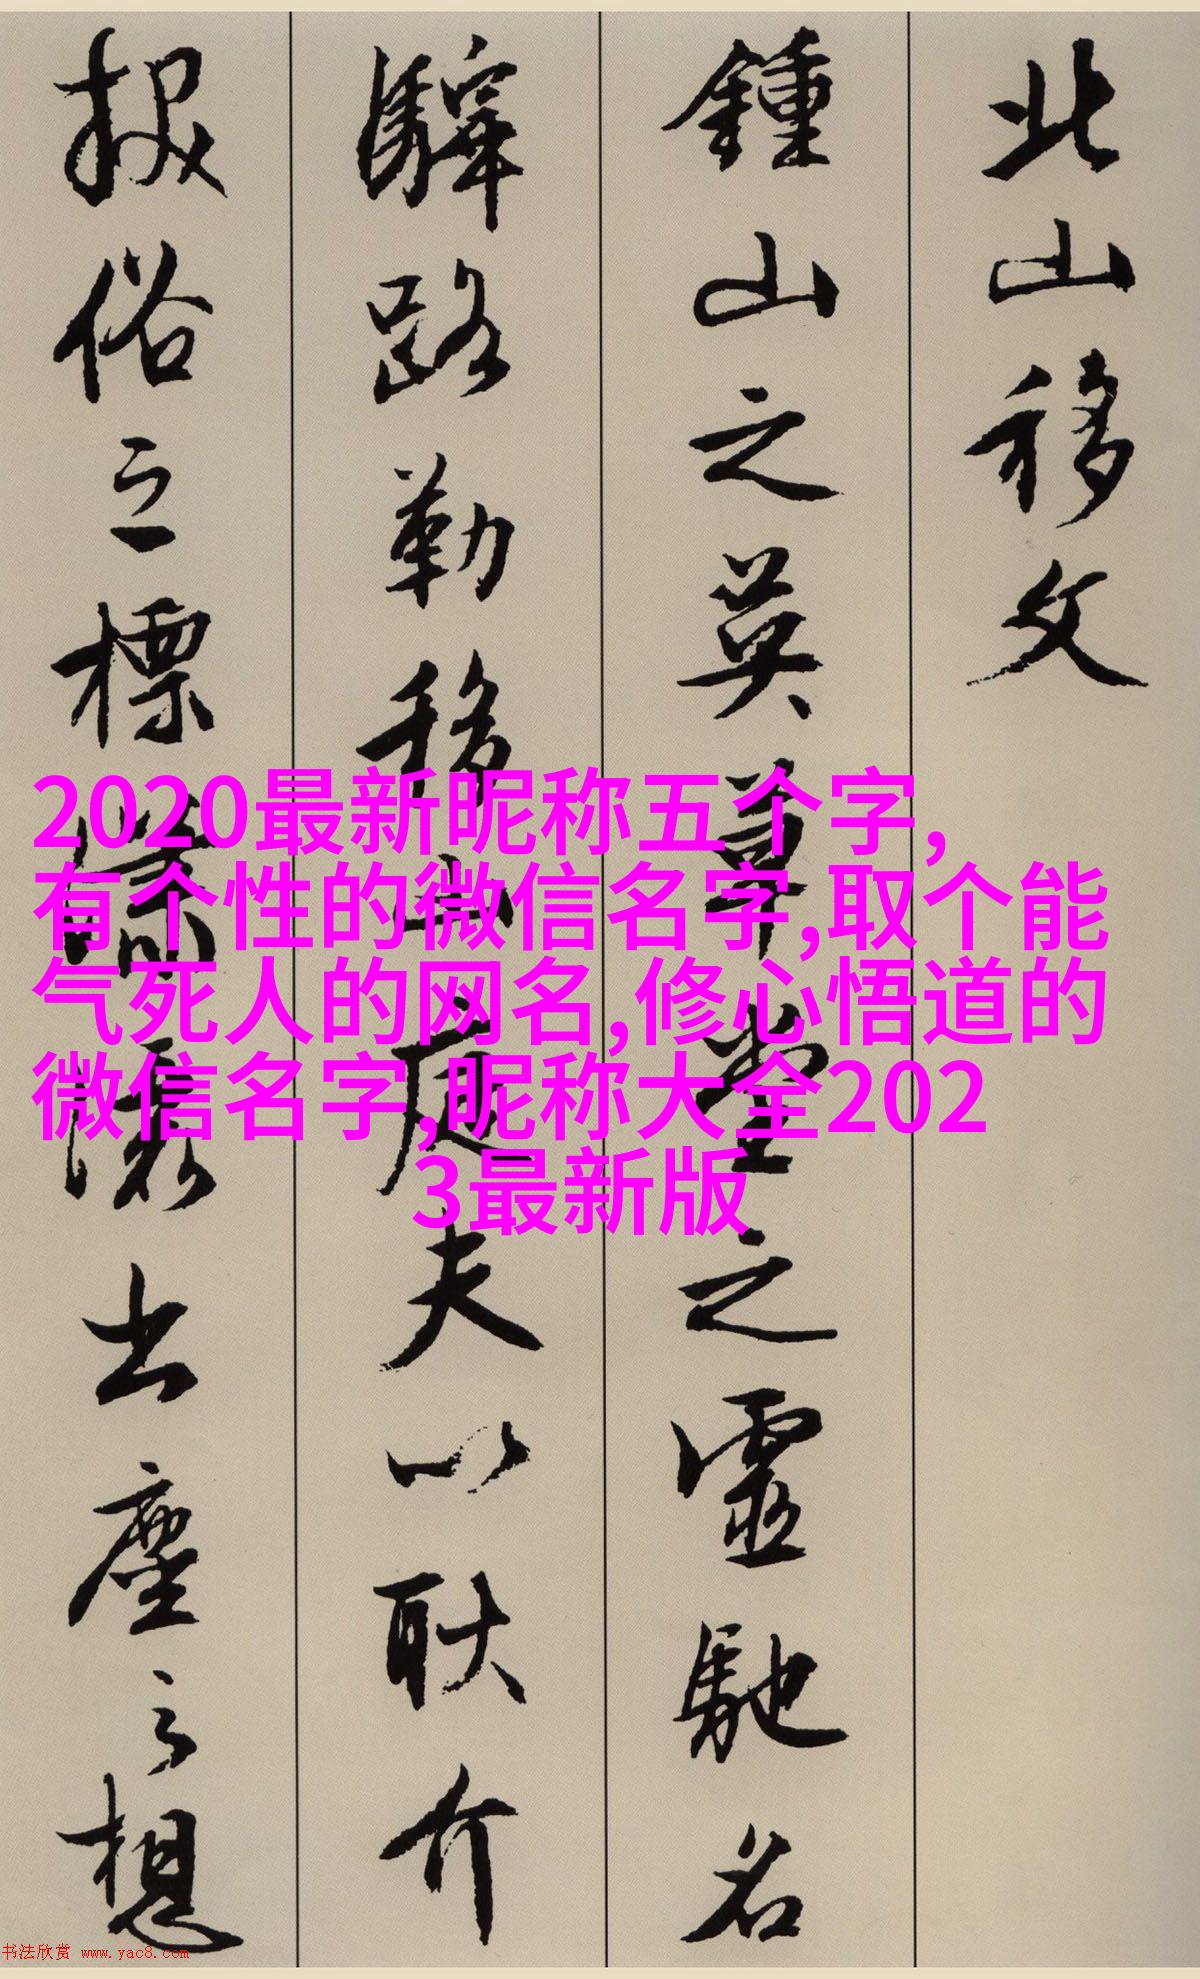 北山移文
鍾山之英草堂之靈馳名
驛路勒移山庭夫以耿介
拔俗之標瀟灑出塵之想
2020最新昵称五个字,
有个性的微信名字,取个能
气死人的网名,修心悟道的
微信名字,昵称大全202
3最新版
书法欣赏 www.yac8.com